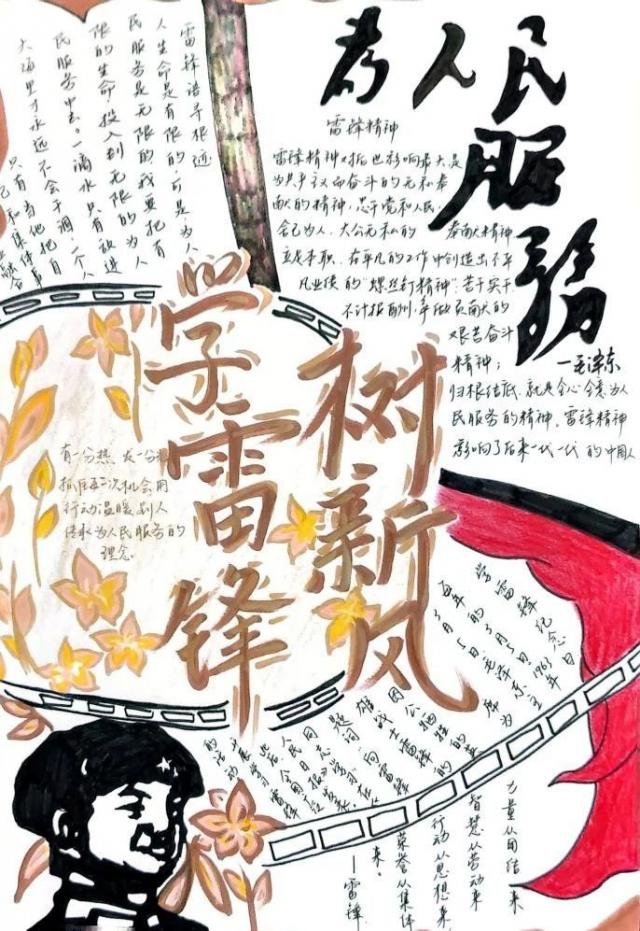 为人民
服
务
—毛泽东
雷锋精神
雷锋精神
为共产主义而奋斗的无私奉
献的精神,忠于党和人民,
舍己为人、大公无私的 奉献精神
立足本职、在平凡的工作中创造出不平
凡业绩的“螺丝钉精神”;苦干实干
不计报酬,争做贡献的
艰苦奋斗
精神;
归根结底,就是全心全意为人
民服务的精神,雷锋精神
影响了后来一代一代的中国人
雷锋语录
人生命是有限的,可是为人
民服务是无限的我要把有
限的生命,投入到无限的为人
民服务中去。一滴水只有放进
大海里才永远不会干涸,一个人
只有当他把自
己和集体事
业融合
学雷锋
树新风
有一分热 发一分
抓住每一次机会用
行动温暖别人
传承为人民服务的
理念。
学雷锋纪念日
每年的3月5日,1963年
3月5日毛泽东主席为
因公牺牲的英
雄战士雷锋
题词“向雷锋
力量从团结来
智慧从劳动来
行动从思想来
荣誉从集体
来。
—雷锋